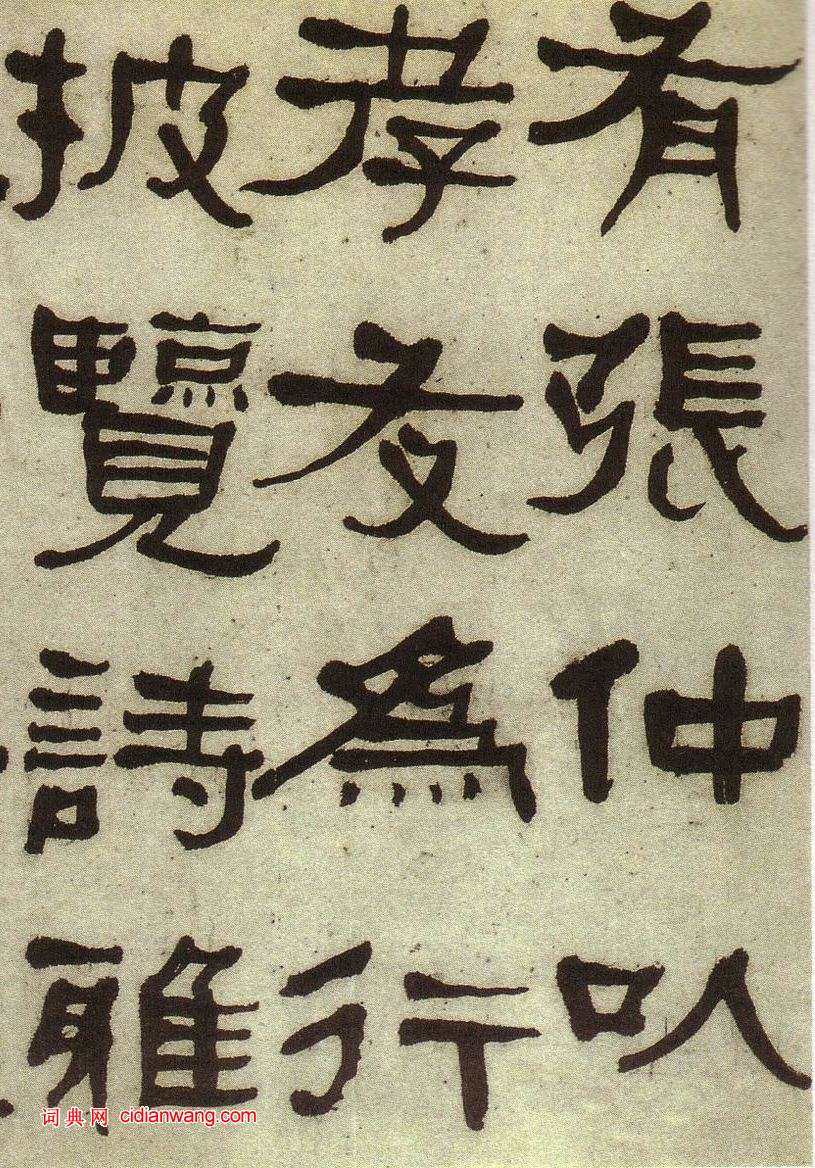 有張仲以
孝友為行
披覽詩雅
词典网 cidianwang.com